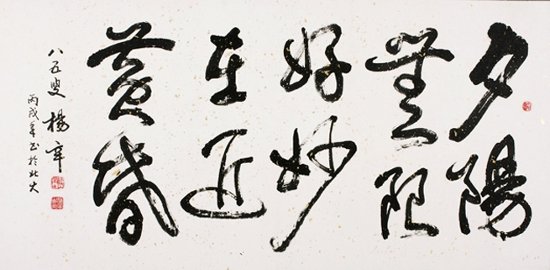 夕陽
無限
好妙
在近
黄昏
八五叟楊辛
丙戌年书於北大